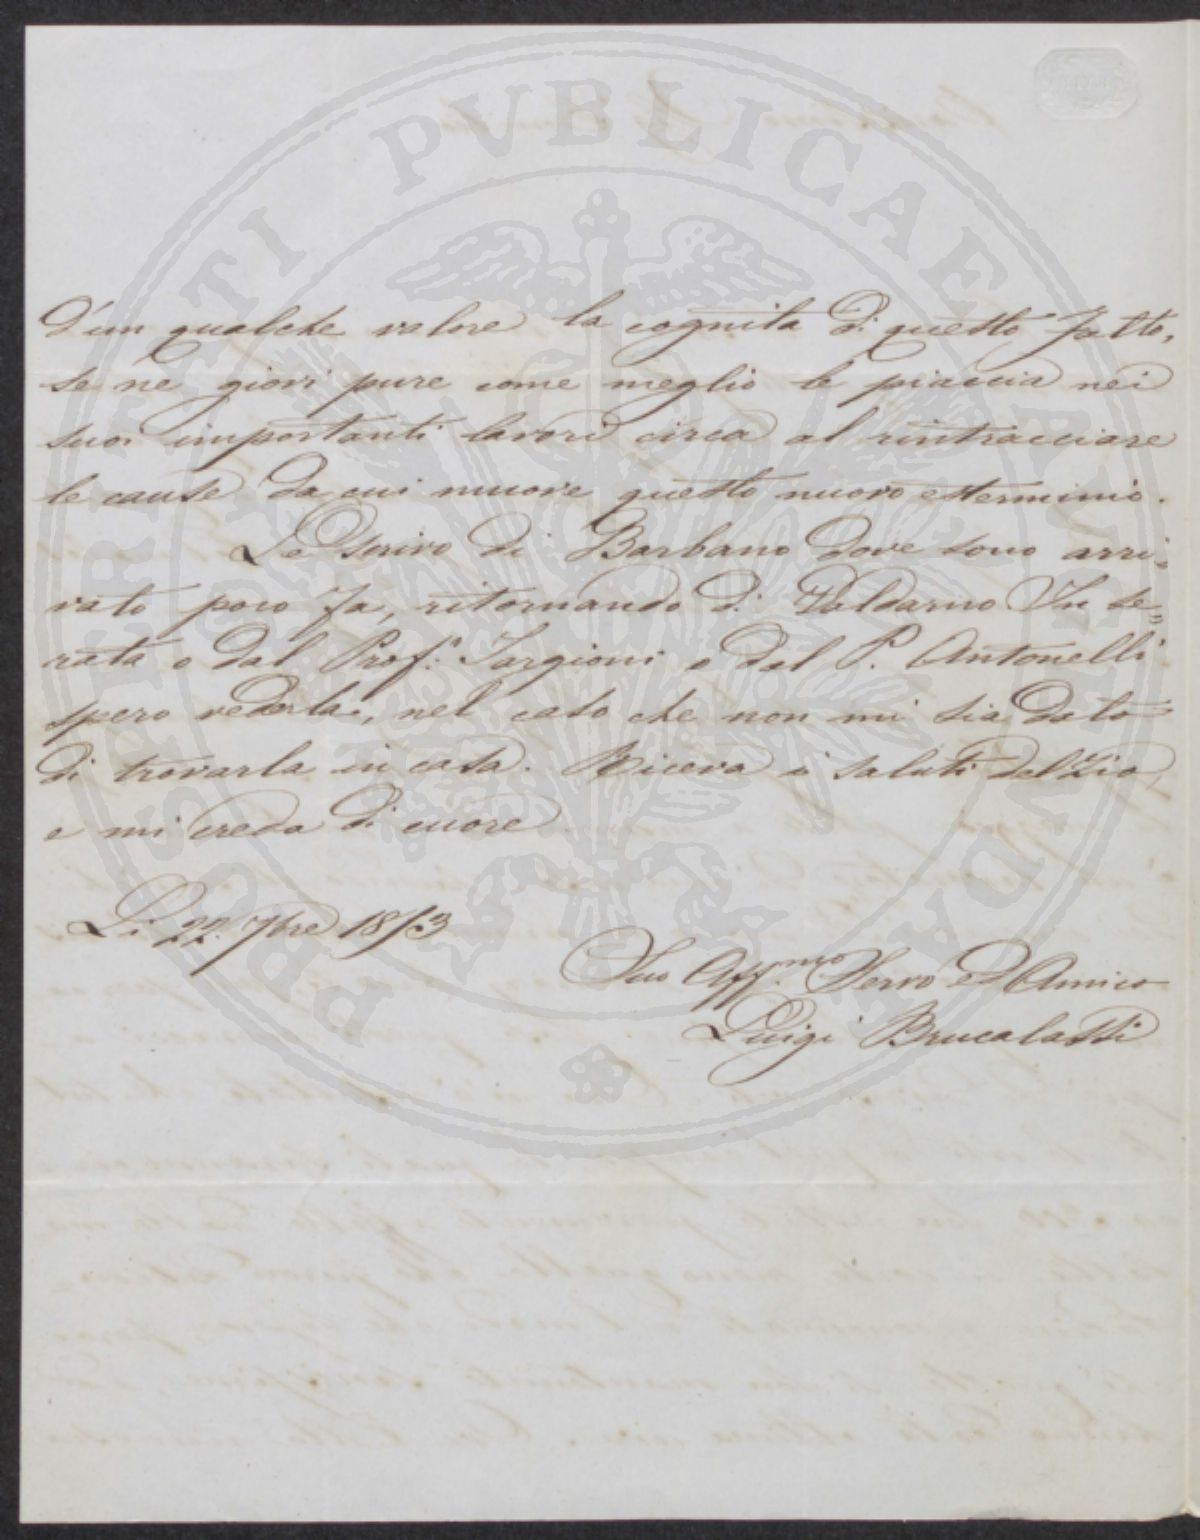 PROSPERITATI PVBLICAE AVGENDAE
d'un qualche valore la cognita di questo fatto,
se ne giovi pure come meglio le piaccia nei
suoi importanti lavori circa al rintracciare
le cause da cui muove questo nuovo esterminio.
Le scrivo di Barbano dove sono arri=
vato poco fa, ritornando di Valdarno In se=
rata o dal Prof.e Targioni o dal P. Antonelli
spero vederla, nel caso che non mi sia dato
di trovarla in casa. Riceva i saluti del Zio,
e mi creda di cuore
Li 22. 7bre 1853
Suo Aff.mo Servo ed Amico
Luigi Brucalassi